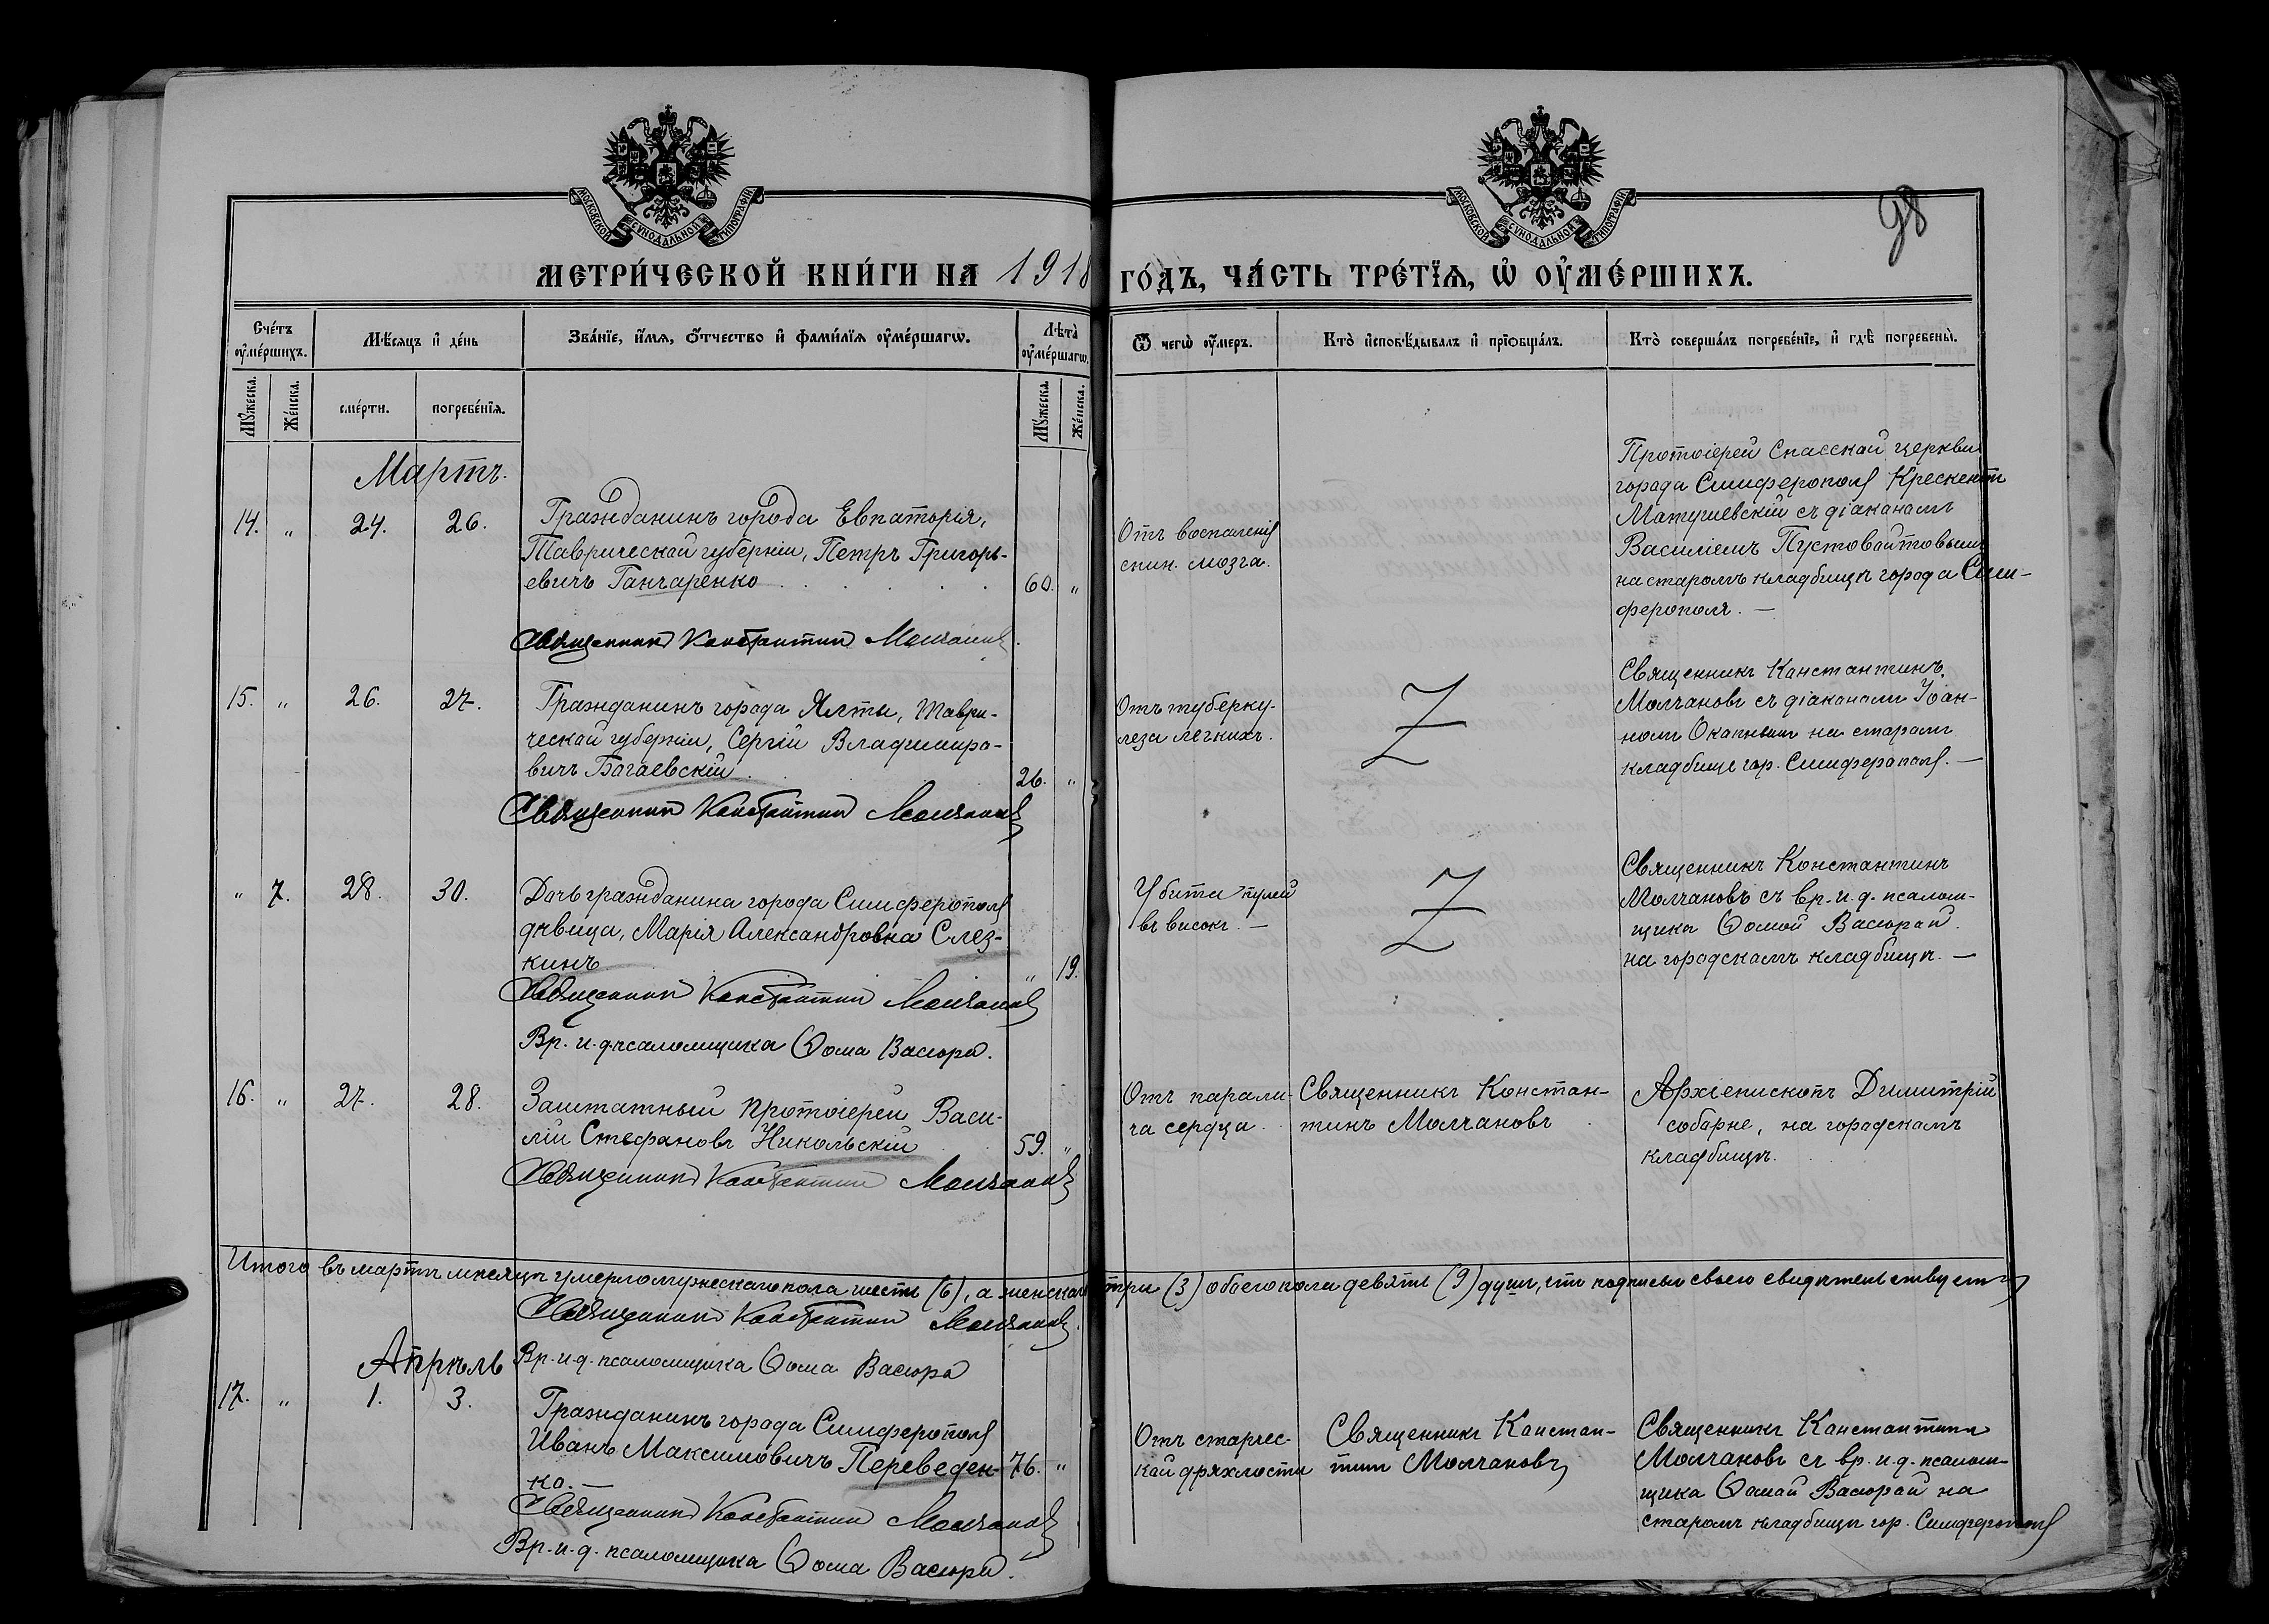 МОСКОВСКОЙ СУНОДАЛЬНОЙ ТИПОГРАФІИ
МОСКОВСКОЙ СУНОДАЛЬНОЙ ТИПОГРАФІИ
98
МЕТРИ́ЧЕСКОЙ КНИ́ГИ НА 1918 ГО́ДЪ, ЧА́СТЬ ТРЕ́ТЇѦ, Ѡ҆ ОУ҆МЕ́РШИХЪ.
Сче́тъ оу҆ме́ршихъ.
Мѣ́сяцъ и҆ де́нь
Зва́нїе, и҆́мя, ѻ҆́тчество и҆ фами́лїя оу҆ме́ршагѡ.
Лѣта̀ оу҆ме́ршагѡ.
Ѿ чегѡ̀ оу҆́меръ.
Кто̀ и҆сповѣ́дывалъ и҆ прїѡбща́лъ.
Кто̀ соверша́лъ погребе́нїе, и҆ гдѣ̀ погребены̀.
Му́жеска.
Же́нска.
сме́рти.
погребе́нїя.
Му́жеска.
Же́нска.
Мартъ.
14. " 24. 26.
Гражданинъ города Евпаторія,
Таврической губерніи, Петръ Григорь-
евичъ Ганчаренко
60. "
Священникъ Константинъ Молчановъ
Отъ воспаленія
спин. мозга.
Протоіерей Спасской церкви
города Симферополя Крескентъ
Матушевскій съ діаканамъ
Василіемъ Пустовайтовымъ
на старомъ кладбищѣ города Сим-
ферополя. —
15. " 26. 27.
Гражданинъ города Ялты, Таври-
ческой губерніи, Сергій Владимиро-
вичъ Багаевскій
26. "
Священникъ Константинъ Молчановъ
Отъ туберку-
леза легкихъ.
Z
Священникъ Канстантинъ
Молчановъ съ діаканамъ Іоан-
номъ на старомъ
кладбище гор. Симферополя. —
" 7. 28. 30.
Дочь гражданина города Симферополя
дѣвица, Марія Александровна Слез-
кинъ
" 19.
Священникъ Константинъ Молчановъ
Вр. и. д. псаломщика Ѳома Васюра.
Убита пулей
въ високъ. —
Z
Священникъ Константинъ
Молчановъ съ вр. и. д. псалом-
щика Ѳомой Васюрой.
на городскомъ кладбищѣ. —
16. " 27. 28.
Заштатный протоіерей Васи-
лій Стефановъ Никольскій
59. "
Священникъ Константинъ Молчановъ
Отъ парали-
ча сердца.
Священникъ Констан-
тинъ Молчановъ
Архіепископъ Димитрій
собарне, на городскомъ
кладбищѣ.
Итого въ мартѣ мѣсяцѣ умерло мужескаго пола шесть (6), а женскаго три (3) обоего пола девять (9) душъ, что подписью своею свидѣтельствуетъ
Священникъ Константинъ Молчановъ.
Вр. и. д. псаломщика Ѳома Васюра
Апрѣль
17. " 1. 3.
Гражданинъ города Симферополя
Иванъ Максимовичъ Переведен-
ко. —
76. "
Священникъ Константинъ Молчановъ
Вр. и. д. псаломщика Ѳома Васюра.
Отъ старчес-
кой дряхлости
Священникъ Констан-
тинъ Молчановъ
Священникъ Канстантинъ
Молчановъ съ вр. и. д. псалом-
щика Ѳомай Васюрай на
старомъ кладбищѣ гор. Симферополя